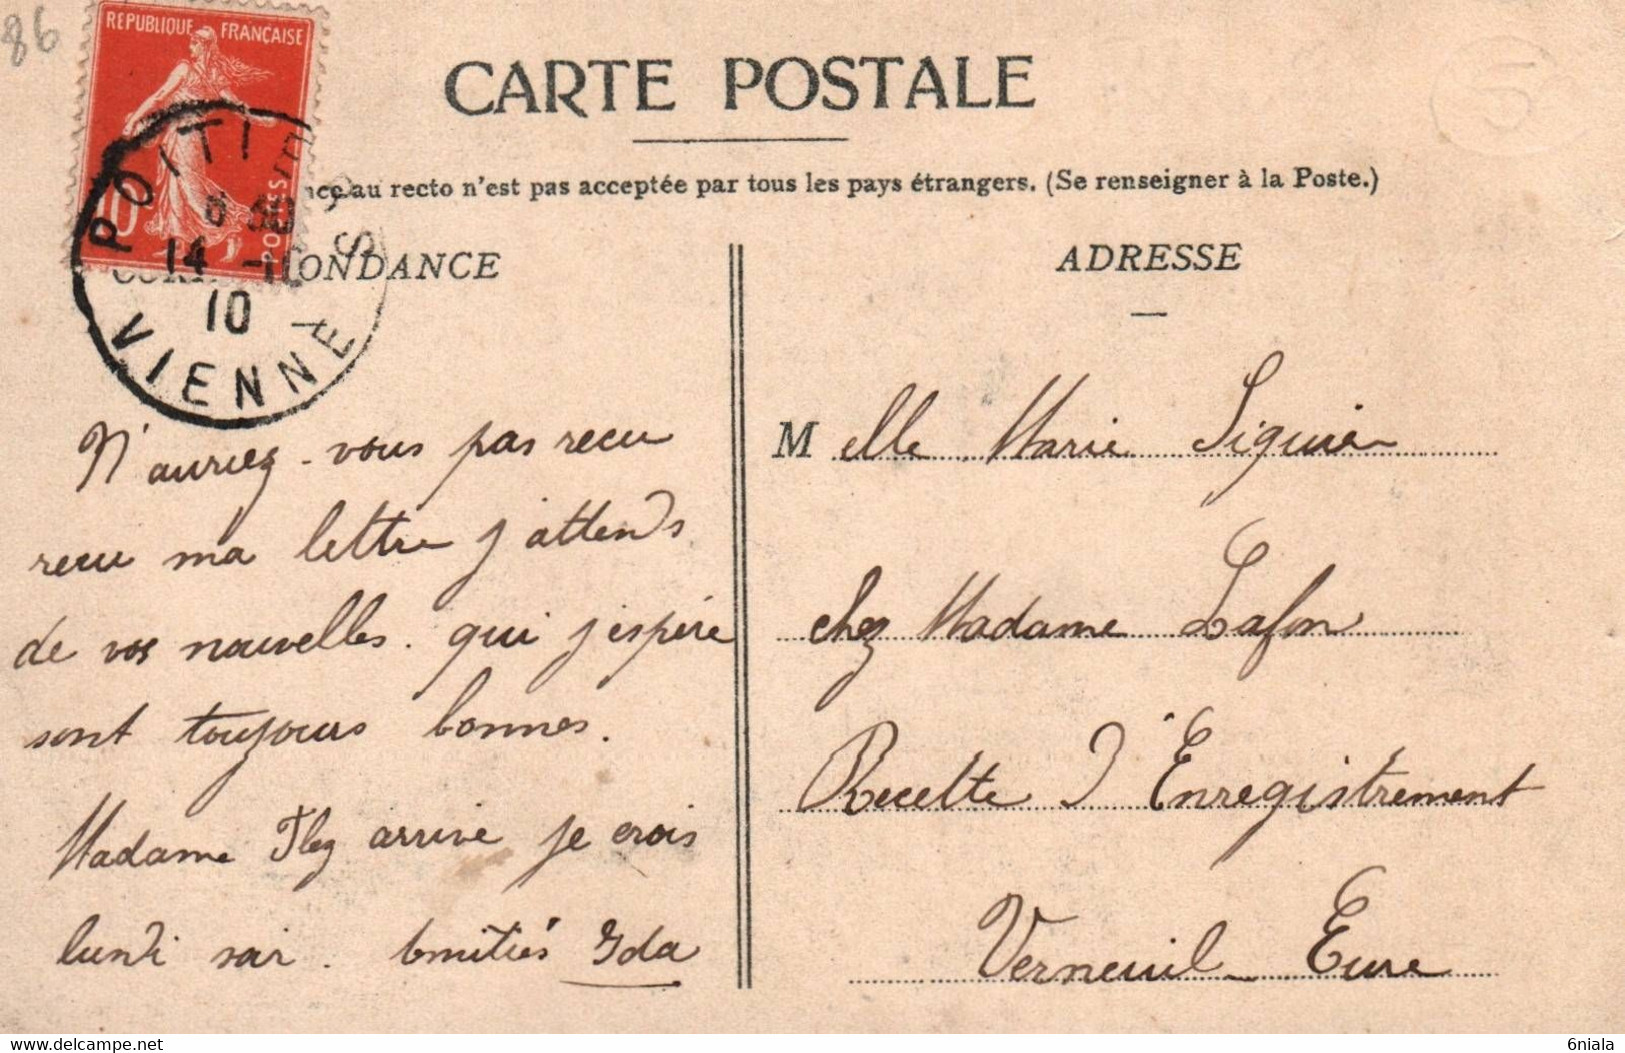 86
REPUBLIQUE FRANÇAISE
10
POSTES
CARTE POSTALE
au recto n'est pas acceptée par tous les pays étrangers. (Se renseigner à la Poste.)
POITIERS
14
10
VIENNE
ONDANCE
N'auriez-vous pas recu
recu ma lettre j'attends
de vos nouvelles. qui j'espère
sont toujours bonnes.
Madame arrive je crois
lundi soir. Amitiés Ida
ADRESSE
Melle Marie Siguier
chez Madame Lafon
Recette d'Enregistrement
Verneuil Eure
6niala